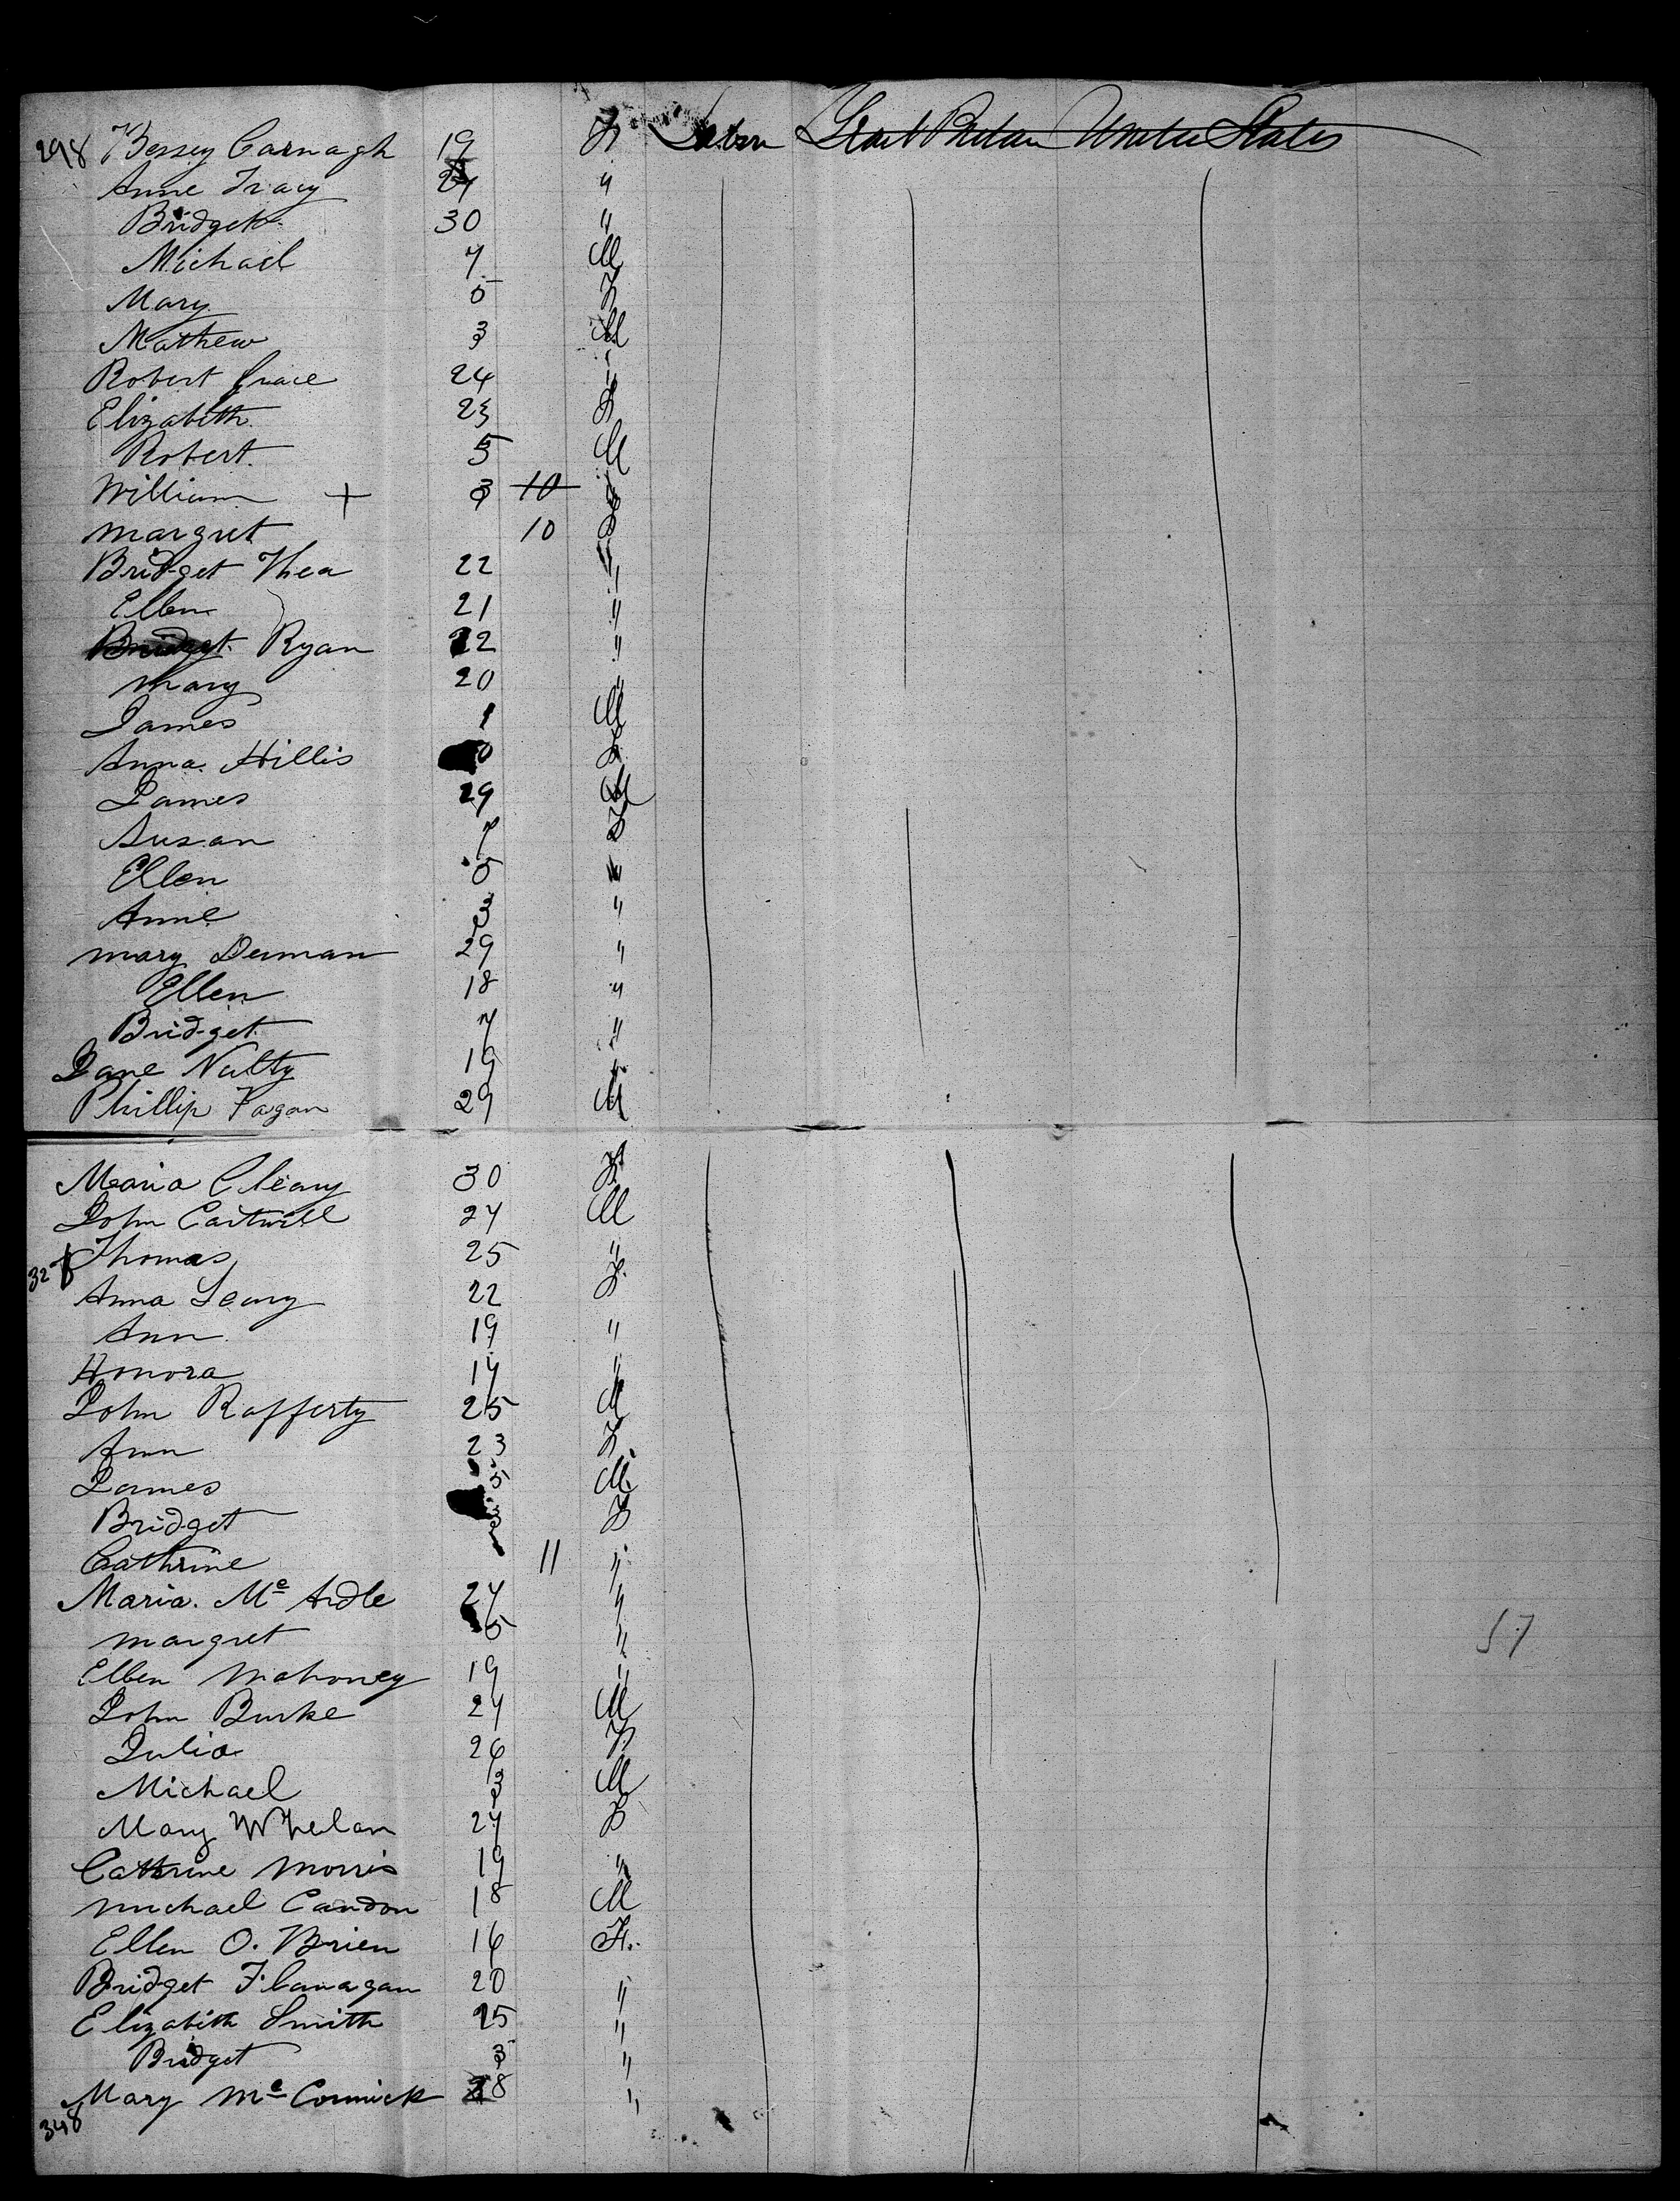 298 Bessey Carnagh 19 F Labor Great Britan United States
Anne Tracy "
Bridget 30 "
Michael 7 M
Mary 5 F
Mathew 3 M
Robert Grace 24 "
Elizabeth 23 F
Robert 5 M
William + 3 10
Margret 10 F
Bridget Shea 22 "
Ellen 21 "
Bridget Ryan 22 "
Mary 20 "
James 1 M
Anna Hillis F
James 29 M
Susan 7 F
Ellen 5 "
Annie 3 "
Mary Dennan 29 "
Ellen 18 "
Bridget 7 "
Jane Nulty 19 "
Phillip Fagan 29 M
Maria Cleary 30 F
John Cartwill 27 M
Thomas 25 "
Anna Leary 22 F
Ann 19 "
Honora 17 "
John Rafferty 25 M
Ann 23 F
James 5 M
Bridget 3 F
Cathrine 11 "
Maria Mc Ardle 27 "
Margret 5 "
Ellen Mahoney 19 "
57
John Burke 27 M
Julia 26 F
Michael 3 M
Mary Whelan 27 F
Cathrine Morris 19 "
Michael Candon 18 M
Ellen O. Brien 16 F.
Bridget Flanagan 20 "
Elizabith Smith 25 "
Bridget 3 "
Mary Mc Cormick 28 "
348